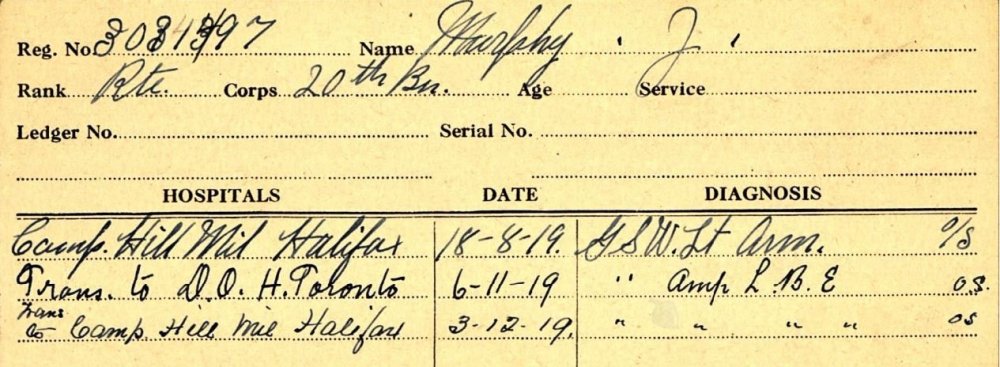 Reg. No. 3031497 Name Murphy, J.
Rank Pte. Corps 20th Bn. Age Service
Ledger No. Serial No.
HOSPITALS DATE DIAGNOSIS
Camp. Hill Mil Halifax 18-8-19. GSW. Lt Arm. O/S
Trans. to D.O.H. Toronto 6-11-19 " Amp L.B.E OS.
Trans to Camp Hill Mil Halifax 3-12-19. " " " " OS